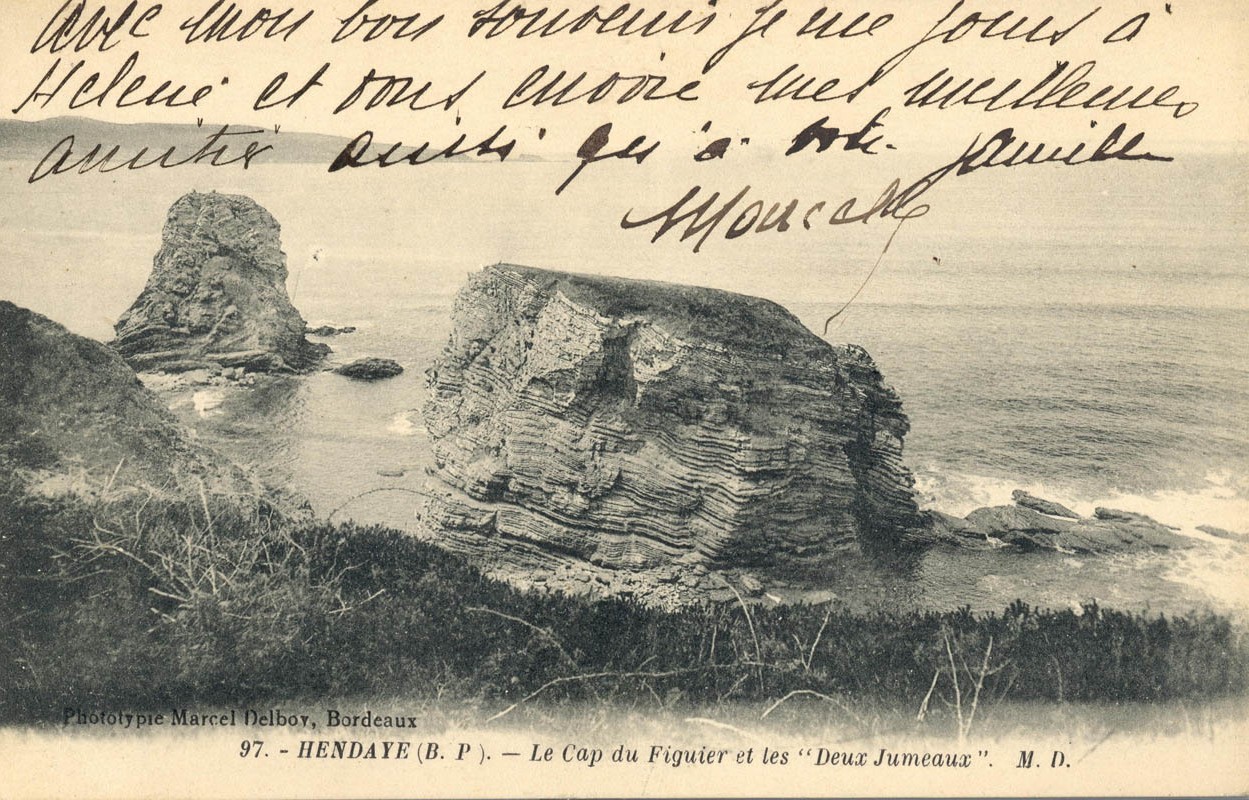 Avec mon bon souvenir je me joins à
Hélène et vous envoie mes meilleures
amitiés ainsi qu'à votre famille
Marcelle
Phototypie Marcel Delboy, Bordeaux
97. - HENDAYE (B. P). — Le Cap du Figuier et les "Deux Jumeaux". M. D.